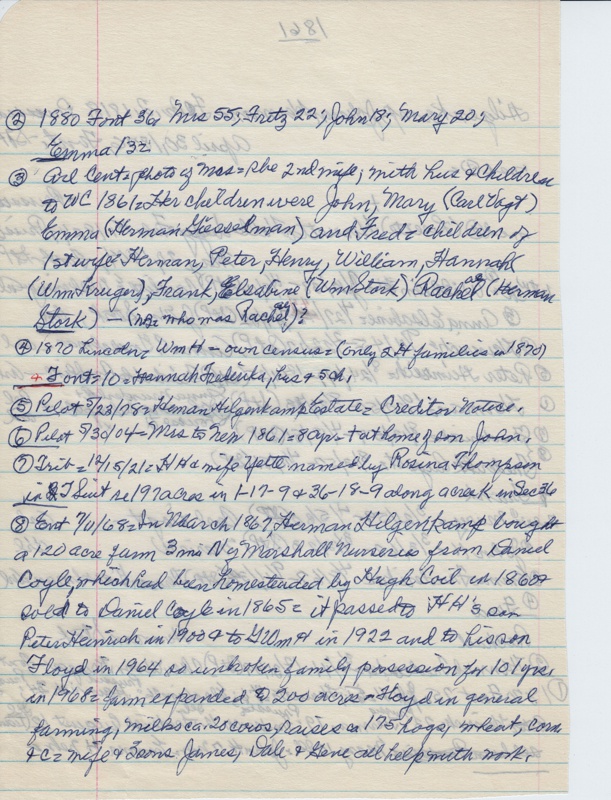 1861
② 1880 Font 36= Mrs 55; Fritz 22; John 18; Mary 20;
Emma 13=
③ Arl Cent = photo of Mrs = she 2nd wife; with hus & children
to WC 1861 = Her children were John, Mary (Carl Vogt)
Emma (Herman Giesselman) and Fred = children of
1st wife = Herman, Peter, Henry, William, Hannah
(Wm Kruger), Frank, Elesabine (Wm Stork) Rachel (Herman
Stork) — (NB= who was Rachel)?
④ 1870 Lincoln = Wm H — own census = (only 2 H families in 1870)
+ Font = 10 = Hannah Fredirika, hus & 5 ch.
⑤ Pilot 5/23/78 = Heman Hilgenkamp Estate = Creditor Notice.
⑥ Pilot 5/30/04 = Mrs to Neb 1861 = 80 yr = + at home of son John.
⑦ Trib = 12/15/21 = HH & wife Yette named by Rosina Thompson
in QT Suit re 197 acres in 1-17-9 & 36-18-9 along a creek in Sec 36
⑧ Ent 7/11/68 = In March 1867, Herman Hilgenkamp bought
a 120 acre farm 3 mi N of Marshall Nurseries from Daniel
Coyle, which had been homesteaded by Hugh Coil in 1860 &
sold to Daniel Coyle in 1865 = it passed to HH's son
Peter Heinrich in 1900 & to G Wm H in 1922 and to his son
Floyd in 1964 so unbroken family possession for 101 yrs.
in 1968 = farm expanded to 200 acres = Floyd in general
farming, milks ca. 20 cows, raises ca 175 hogs, wheat, corn
&c = wife & 3 sons James, Dale & Gene all help with work.